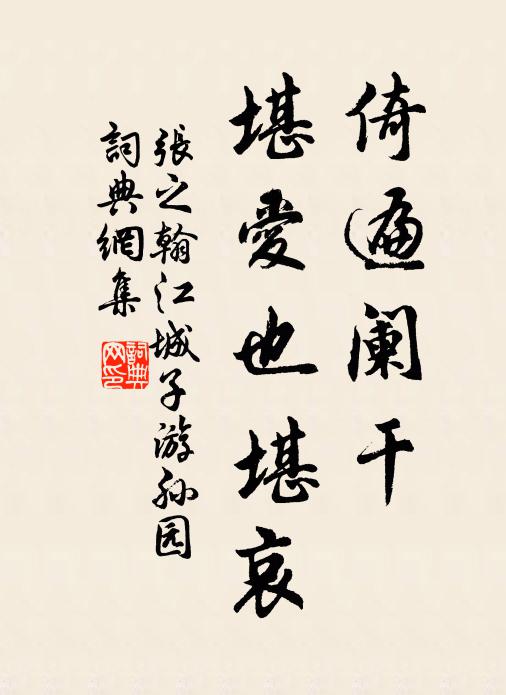 倚遍阑干
堪愛也堪哀
張之翰江城子游孙园
詞典網集
詞典網印